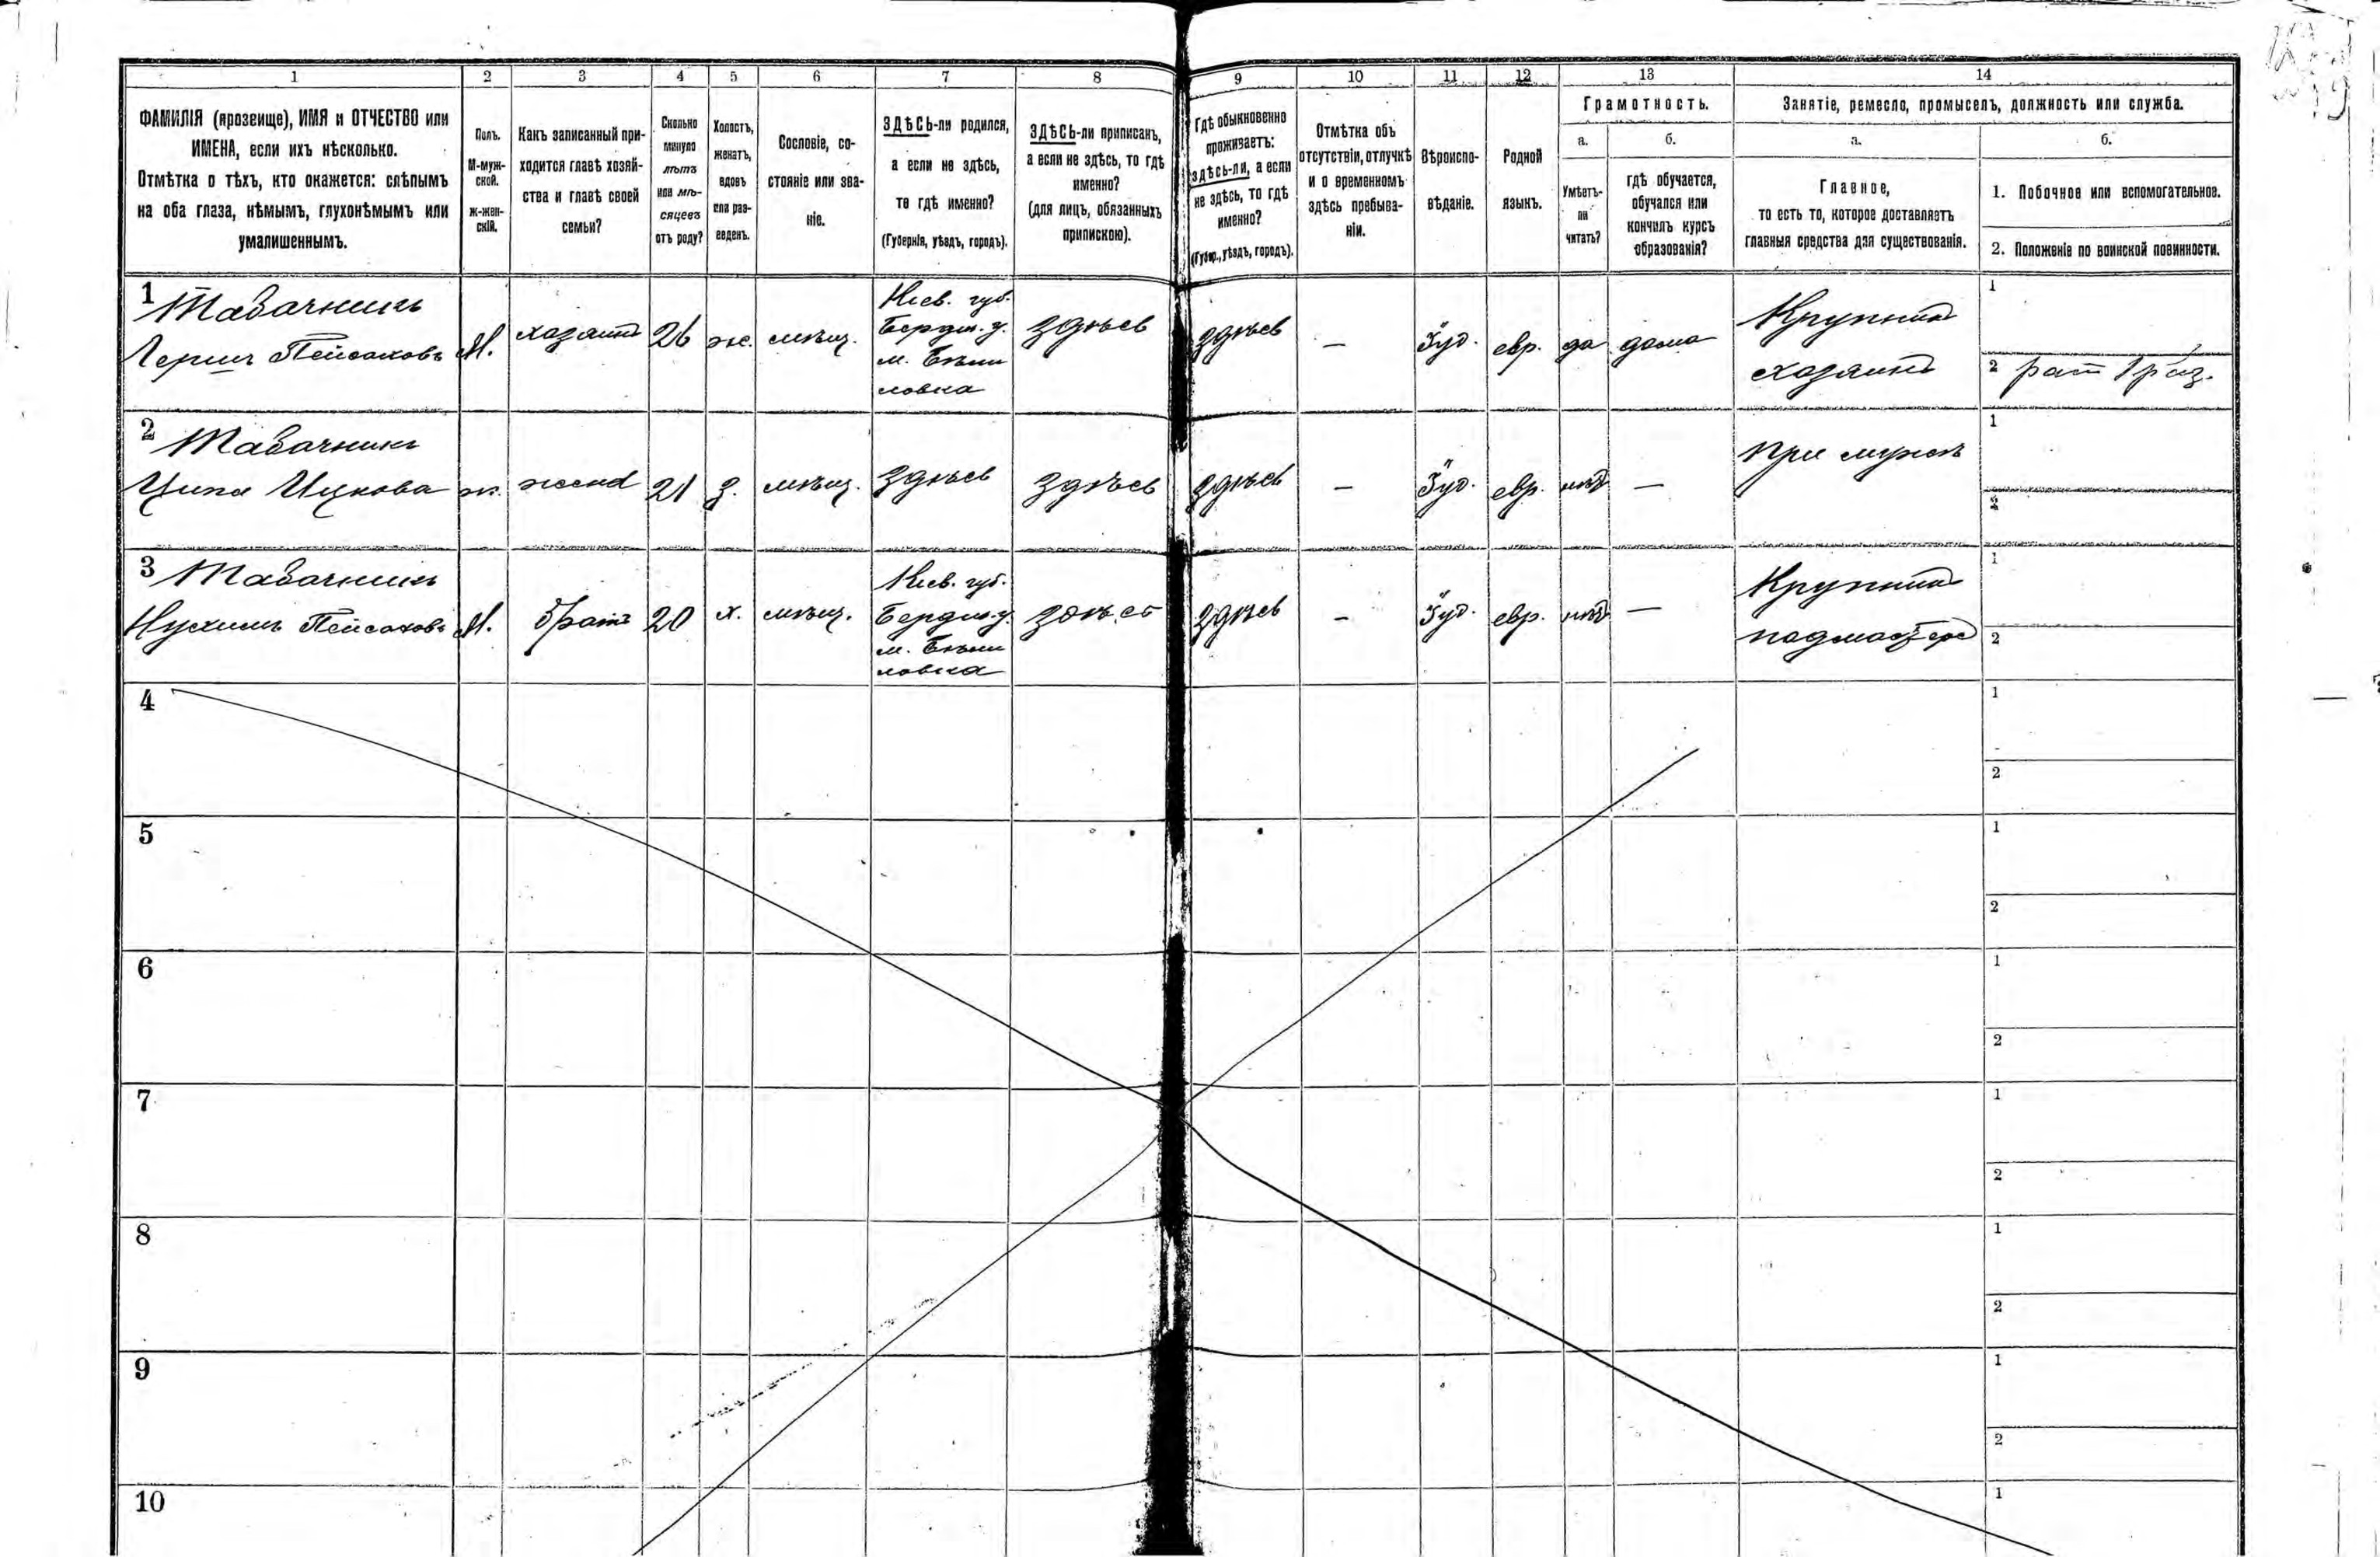 1 2 3 4 5 6 7 8 9 10 11 12 13 14
ФАМИЛІЯ (прозвище), ИМЯ и ОТЧЕСТВО или
ИМЕНА, если ихъ нѣсколько.
Отмѣтка о тѣхъ, кто окажется: слѣпымъ
на оба глаза, нѣмымъ, глухонѣмымъ или
умалишеннымъ.
Полъ.
М-муж-
ской.
ж-жен-
скій.
Какъ записанный при-
ходится главѣ хозяй-
ства и главѣ своей
семьи?
Сколько
минуло
лѣтъ
или мѣ-
сяцевъ
отъ роду?
Холостъ,
женатъ,
вдовъ
или раз-
веденъ.
Сословіе, со-
стояніе или зва-
ніе.
ЗДѢСЬ-ли родился,
а если не здѣсь,
то гдѣ именно?
(Губернія, уѣздъ, городъ).
ЗДѢСЬ-ли приписанъ,
а если не здѣсь, то гдѣ
именно?
(для лицъ, обязанныхъ
припискою).
Гдѣ обыкновенно
проживаетъ:
здѣсь-ли, а если
не здѣсь, то гдѣ
именно?
(Губер., уѣздъ, городъ).
Отмѣтка объ
отсутствіи, отлучкѣ
и о временномъ
здѣсь пребыва-
ніи.
Вѣроиспо-
вѣданіе.
Родной
языкъ.
Грамотность.
а.
Умѣетъ-
ли
читать?
б.
гдѣ обучается,
обучался или
кончилъ курсъ
образованія?
Занятіе, ремесло, промыселъ, должность или служба.
а.
Главное,
то есть то, которое доставляетъ
главныя средства для существованія.
б.
1. Побочное или вспомогательное.
2. Положеніе по воинской повинности.
1 Табачникъ
Гершъ Пейсаховъ
М.
хозяинъ
26
ж.
мѣщ.
Кіев. губ.
Бердич. у.
м. Бѣли
ловка
здѣсь
здѣсь
—
Іуд.
евр.
да
дома
Крупникъ
хозяинъ
1
2 рат 1 раз.
2 Табачникъ
Ципа Ицкова
ж.
жена
21
з.
мѣщ.
здѣсь
здѣсь
здѣсь
—
Іуд.
евр.
нѣтъ
—
При мужѣ
1
2
3 Табачникъ
Нухимъ Пейсаховъ
М.
братъ
20
х.
мѣщ.
Кіев. губ.
Бердич. у.
м. Бѣли
ловка
здѣсь
здѣсь
—
Іуд.
евр.
нѣтъ
—
Крупникъ
подмастерье
1
2
4
1
2
5
1
2
6
1
2
7
1
2
8
1
2
9
1
2
10
1